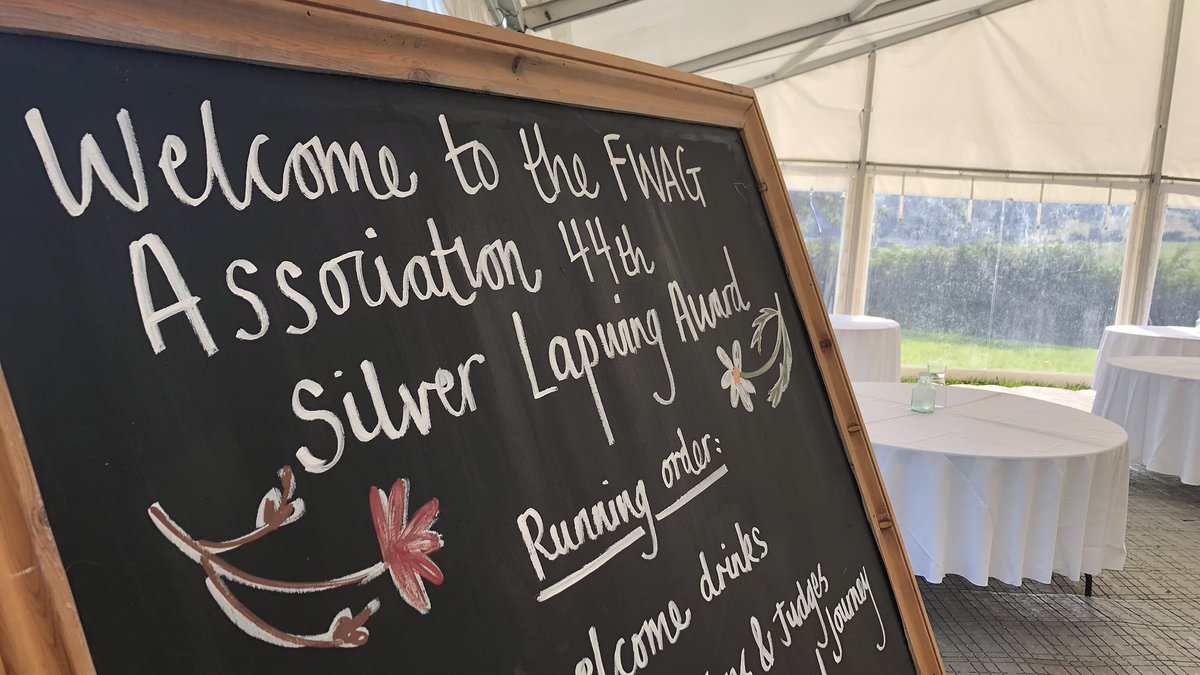 Welcome to the FWAG
Association 44th
Silver Lapwing Award
Running order:
drinks
& Judges
Journey